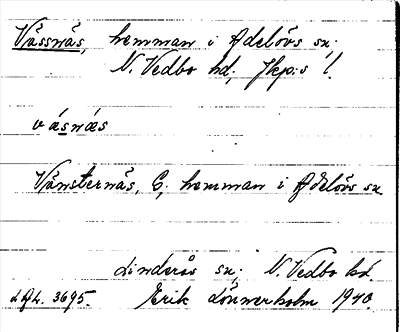 Vässnäs, hemman i Adelövs sn.
N. Vedbo hd, Jkp:s l.
väsnäs
Vänsternäs, C, hemman i Adelövs sn
Linderås sn, N. Vedbo hd.
ULA. 3695. Erik Lönnerholm 1940.